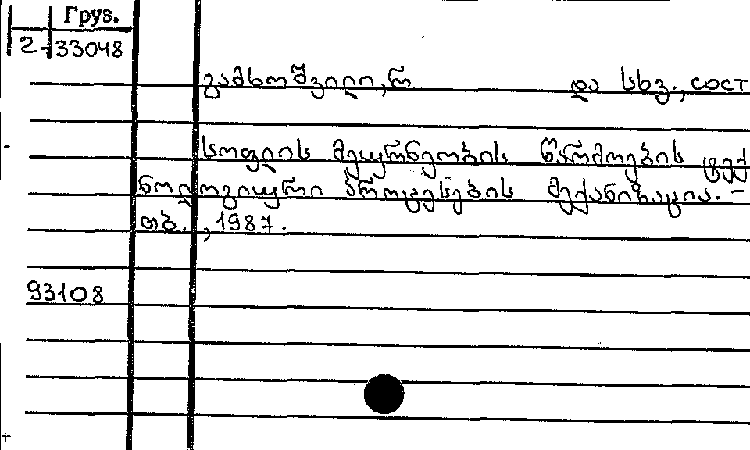 Груз.
2-33048
გამხოშვილი, რ და სხვ., сост
სოფლის მეურნეობის წარმოების ტექ
ნოლოგიური პროცესების მექანიზაცია. –
თბ., 1987.
93108